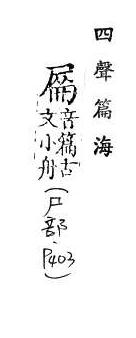 四聲篇海
音篇古
文小舟
(尸部、P403)